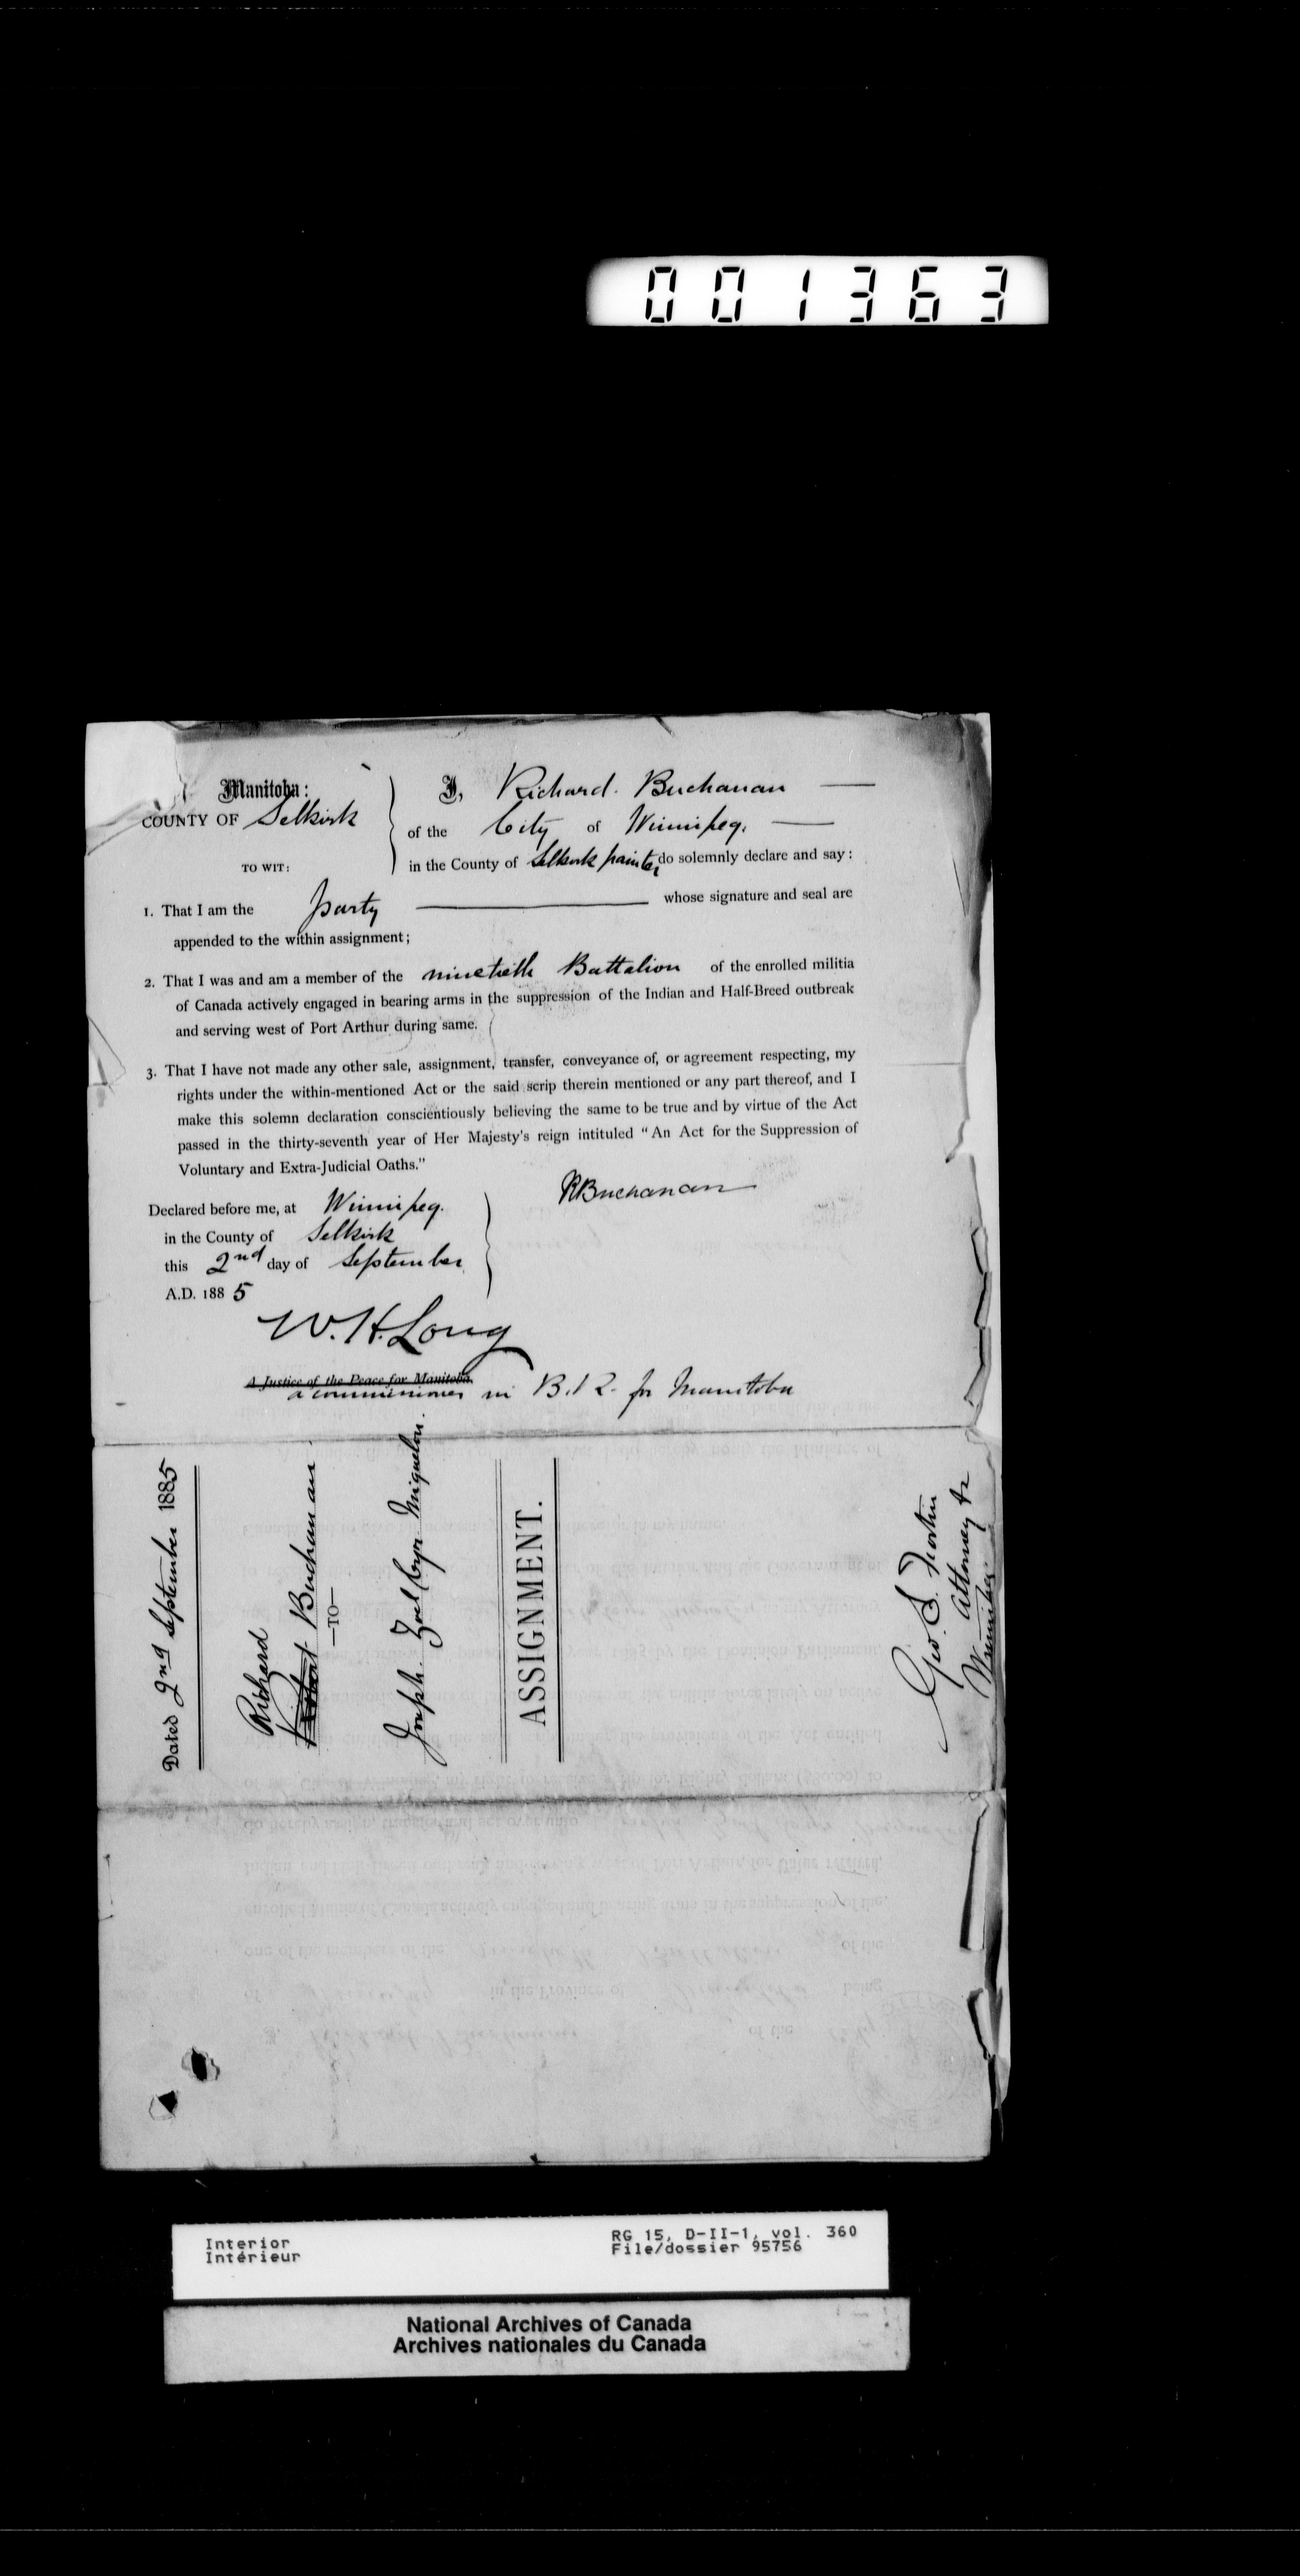 001363
Manitoba:
COUNTY OF Selkirk
TO WIT:
I, Richard Buchanan
of the City of Winnipeg,
in the County of Selkirk painter do solemnly declare and say:
1. That I am the party whose signature and seal are
appended to the within assignment;
2. That I was and am a member of the ninetieth Battalion of the enrolled militia
of Canada actively engaged in bearing arms in the suppression of the Indian and Half-Breed outbreak
and serving west of Port Arthur during same.
3. That I have not made any other sale, assignment, transfer, conveyance of, or agreement respecting, my
rights under the within-mentioned Act or the said scrip therein mentioned or any part thereof, and I
make this solemn declaration conscientiously believing the same to be true and by virtue of the Act
passed in the thirty-seventh year of Her Majesty's reign intituled "An Act for the Suppression of
Voluntary and Extra-Judicial Oaths."
RBuchanan
Declared before me, at Winnipeg.
in the County of Selkirk
this 2nd day of September
A.D. 1885
W. H. Long
A Justice of the Peace for Manitoba.
a commissioner in B.R. for Manitoba
Dated 2nd September 1885
Richard
Buchanan
—TO—
Joseph Zoel Cyr Miquelon.
ASSIGNMENT.
Geo. S.
Attorney &c
Winnipeg.
Interior
Intérieur
RG 15, D-II-1, vol. 360
File/dossier 95756
National Archives of Canada
Archives nationales du Canada